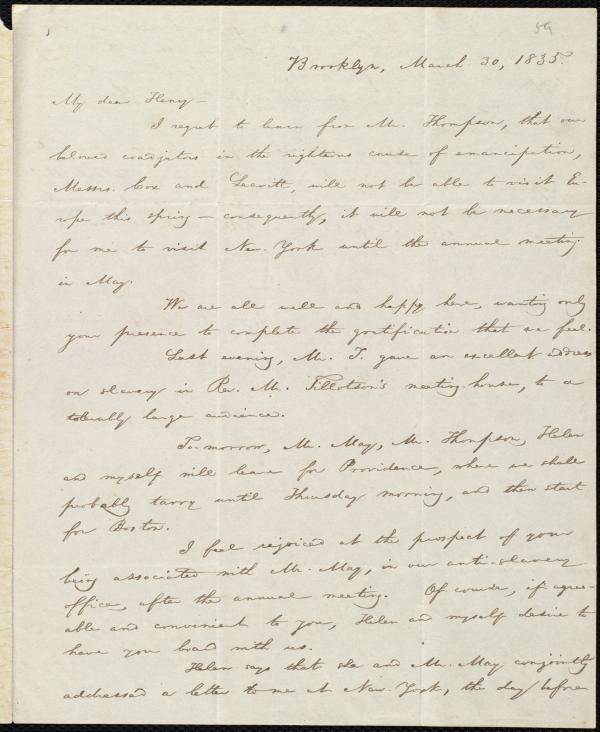 59
Brooklyn, March 30, 1835.
My dear Henry—
I regret to learn from Mr. Thompson, that our
beloved coadjutors in the righteous cause of emancipation,
Messrs. Cox and Leavitt, will not be able to visit Eu-
rope this spring — consequently, it will not be necessary
for me to visit New-York until the annual meeting
in May.
We are all well and happy here, wanting only
your presence to complete the gratification that we feel.
Last evening, Mr. T. gave an excellent address
on slavery in Rev. Mr. Tillotson's meeting-house, to a
tolerably large audience.
To-morrow, Mr. May, Mr. Thompson, Helen
and myself will leave for Providence, where we shall
probably tarry until Thursday morning, and then start
for Boston.
I feel rejoiced at the prospect of your
being associated with Mr. May, in our anti-slavery
office, after the annual meeting. Of course, if agree-
able and convenient to you, Helen and myself desire to
have you board with us.
Helen says that she and Mr. May conjointly
addressed a letter to me at New-York, the day before